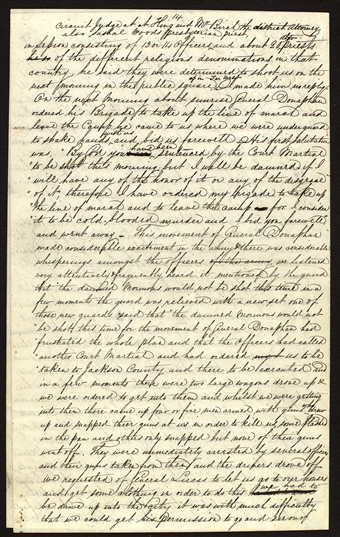 14
Circuit Judge at at King and Mr Birch the district Attorney
also Sashal Woods presbyterian priest
in session consisting of 13 or 14 Officers and about 20 priests
of the different religious denominations in that
country, he said they were determined to shoot us on the
next morning in the public square of Far West, I made him no reply;
On the next Morning about sunrise General Donaphan
ordered his Brigade to take up the line of march and
leave the Camp, he came to us where we were under guard
to shake hands with us, and bid us farewell. His first salutation
was, "By God you have been sentenced by the Court Martial
to be shot this morning, but I will be damned if I
will have any of the honor of it, or any of the disgrace
of it, therefore I have ordered my brigade to take up
the line of march and to leave the camp for I consider
it to be cold blooded murder and I bid you farewell,"
and went away. This movement of General Donaphan
made considerable excitement in the army & there was considerable
whisperings amongst the officers we listened
very attentively & frequently heard it mentioned by the guard
that the damned Mormons would not be shot this time in a
few moments the guard was relieved with a new set one of
those new guards said that the damned Mormons would not
be shot this time for the movement of General Donaphan had
frustrated the whole plan and that the Officers had called
another Court Martial and had ordered us to be
taken to Jackson County and there to be executed And
in a few moments there were two large wagons drove up &
we were ordered to get into them and whilst we were getting
into them there came up four or five men armed with guns who drew
up and snapped their guns at us in order to kill us, some flashed
in the pan and others only snapped but none of their guns
went off. They were immediately arrested by several officers
and their guns taken from them and the drivers drove off.
We requested of General Lucas to let us go to our houses
and get some clothing in order to do this we had to
be drove up into the City it was with much difficulty
that we could get his permission to go and see our